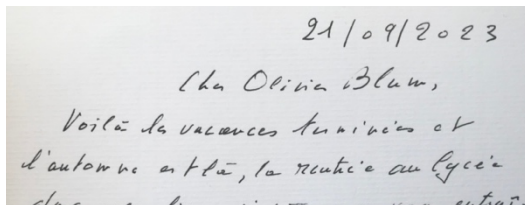 21/09/2023
Cher Olivier Blum,
Voilà les vacances terminées et
l'automne est là, la rentrée au lycée